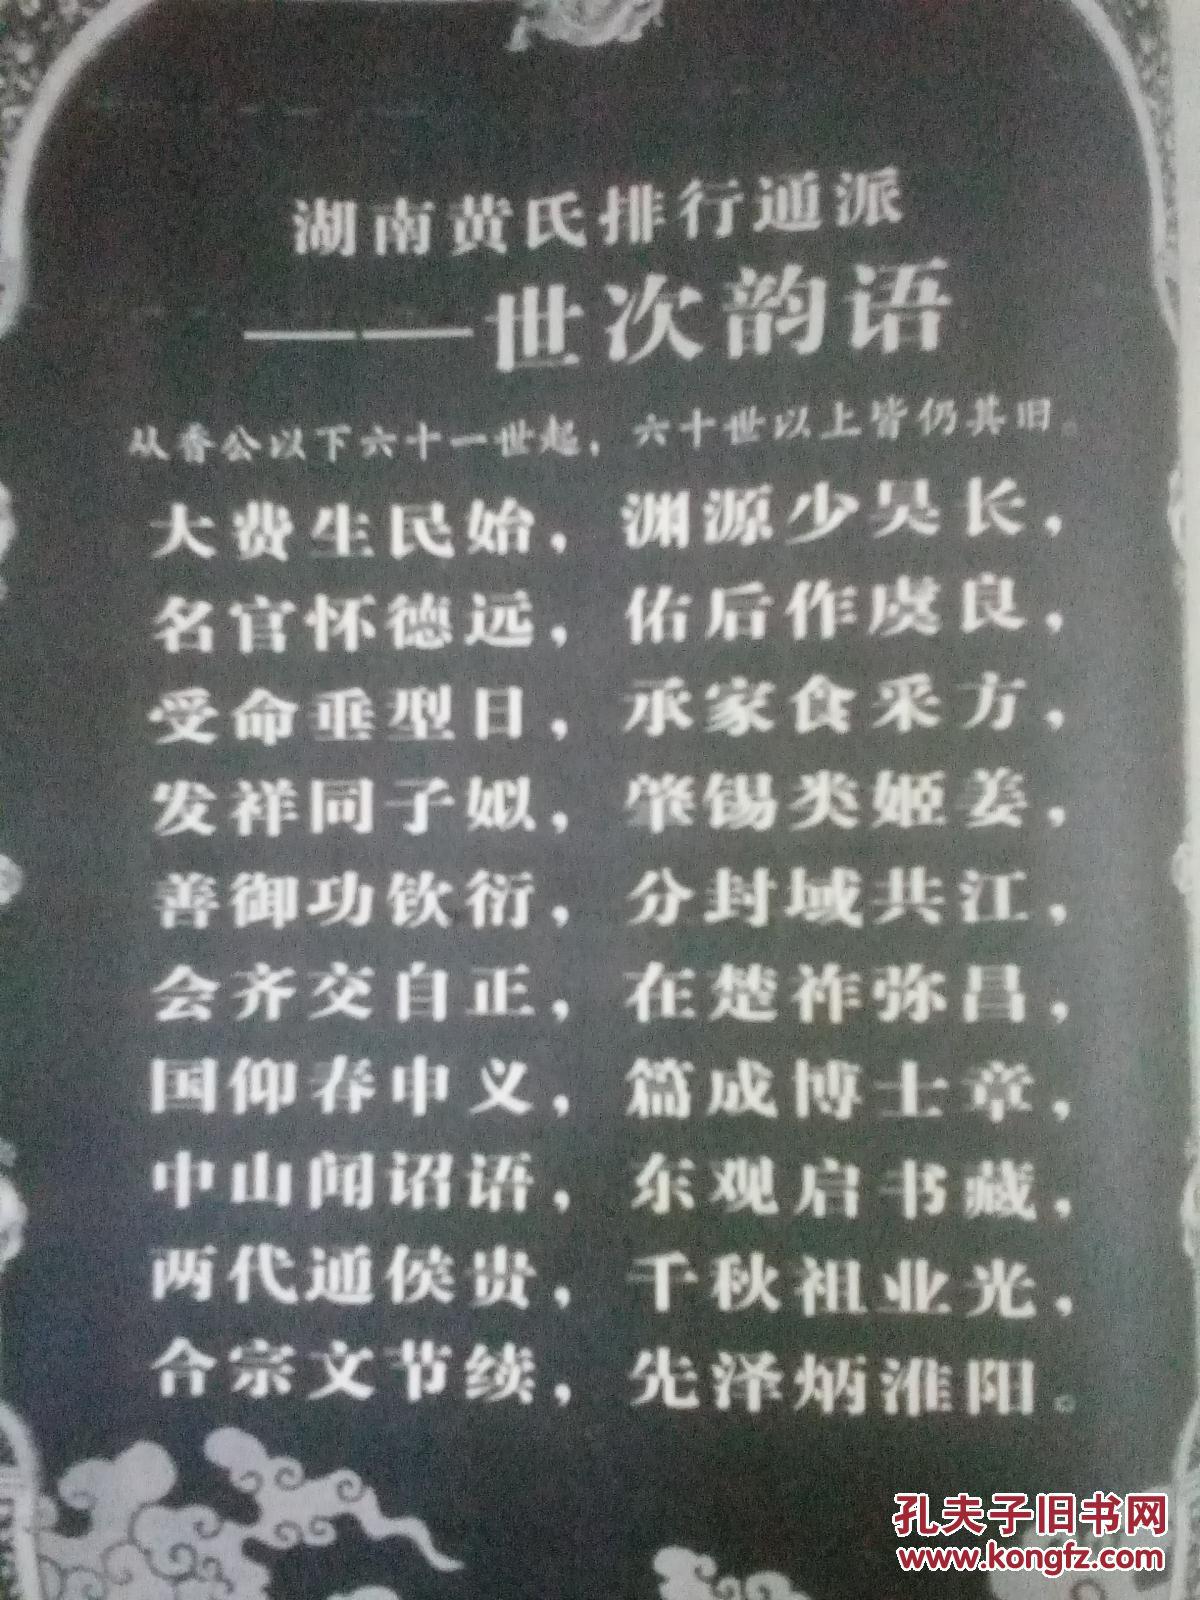 湖南黄氏排行通派
——世次韵语
从香公以下六十一世起，六十世以上皆仍其旧。
大费生民始，渊源少昊长，
名官怀德远，佑后作虞良，
受命垂型日，承家食采方，
发祥同子姒，肇锡类姬姜，
善御功钦衍，分封域共江，
会齐交自正，在楚祚弥昌，
国仰春申义，篇成博士章，
中山闻诏语，东观启书藏，
两代通侯贵，千秋祖业光，
合宗文节续，先泽炳淮阳。
孔夫子旧书网
www.kongfz.com